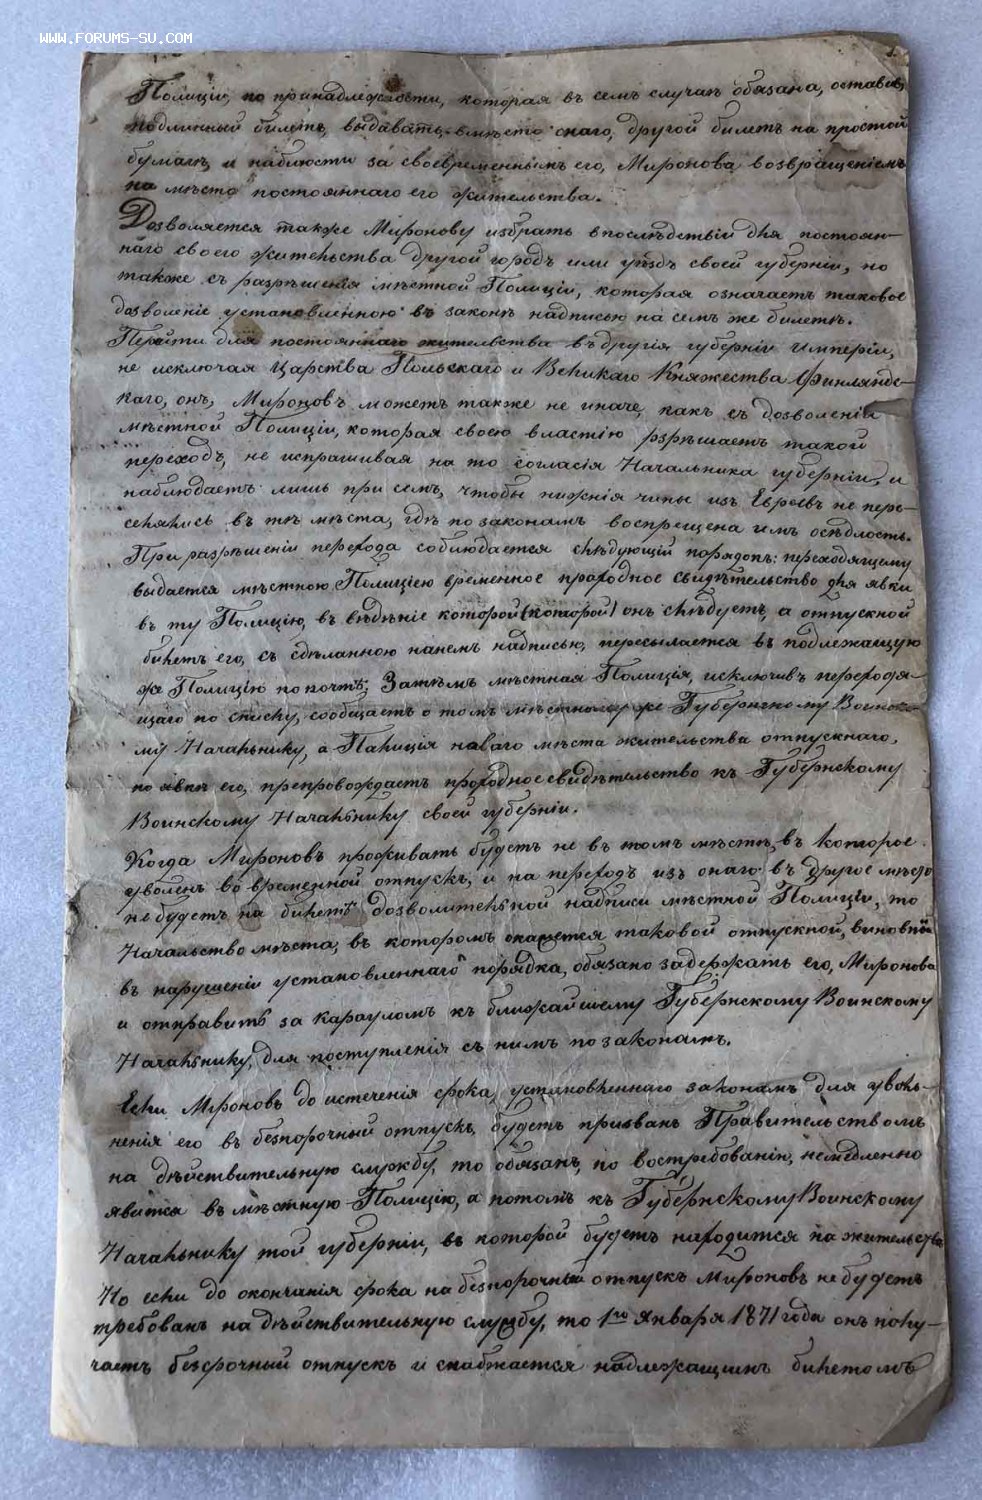 WWW.FORUMS-SU.COM
Полиціи, по принадлежности, которая въ семъ случаѣ обязана, оставивъ
подлинный билетъ, выдавать вмѣсто онаго, другой билетъ на простой
бумагѣ, и наблюсти за своевременнымъ его, Миронова возвращеніемъ
на мѣсто постояннаго его жительства.
Дозволяется также Миронову избрать впослѣдствіи для постоян-
наго своего жительства другой городъ или уѣздъ своей губерніи, но
также съ разрѣшенія мѣстной Полиціи, которая означаетъ таковое
дозволеніе установленною въ законѣ надписью на семъ же билетѣ.
Перейти для постояннаго жительства въ другія губерніи Имперіи,
не исключая Царства Польскаго и Великаго Княжества Финляндс-
каго, онъ, Мироновъ можетъ также не иначе, какъ съ дозволенія
мѣстной Полиціи, которая своею властію рзрѣшаетъ такой
переходъ, не испрашивая на то согласія Начальника губерніи, и
наблюдаетъ лишь при семъ, чтобы нижнія чины изъ Евреевъ не пере-
селялись въ тѣ мѣста, гдѣ по законамъ воспрещена имъ осѣдлость.
При разрѣшеніи перехода соблюдается слѣдующій порядокъ: переходящему
выдается мѣстною Полиціею временное проходное свидѣтельство для явки
въ ту Полицію, въ вѣдѣніе которой (которой) онъ слѣдуетъ, а отпускной
билетъ его, съ сдѣланною нанемъ надписью, пересылается въ подлежащую
же Полицію по почтѣ; Затѣмъ мѣстная Полиція, исключивъ переходя-
щаго по списку, сообщаетъ о томъ мѣстному же Губернскому Воинско-
му Начальнику, а Палиція новаго мѣста жительства отпускнаго,
по явкѣ его, препровождаетъ проходное свидѣтельство къ Губернскому
Воинскому Начальнику своей губерніи.
Когда Мироновъ проживать будетъ не въ томъ мѣстѣ, въ которое
уволенъ во временной отпускъ, и на переходъ изъ онаго въ другое мѣсто
не будетъ на билетѣ дозволительной надписи мѣстной Полиціи, то
Начальство мѣста, въ которомъ окажется таковой отпускной, виновный
въ нарушеніи установленнаго порядка, обязано задержать его, Миронова
и отправить за карауломъ къ ближайшему Губернскому Воинскому
Начальнику, для поступленія съ нимъ по законамъ.
Если Мироновъ до истеченія срока, установленнаго закономъ для уволь-
ненія его въ безпорочный отпускъ, будетъ призванъ Правительствомъ
на дѣйствительную службу, то обязанъ, по востребованію, немедленно
явится въ мѣстную Полицію, а потомъ къ Губернскому Воинскому
Начальнику той губерніи, въ которой будетъ находится на жительствѣ
Но если до окончанія срока на безпорочный отпускъ Мироновъ не будетъ
требованъ на дѣйствительную службу, то 1го Января 1871 года онъ полу-
чаетъ безсрочный отпускъ и снабжается надлежащимъ билетомъ